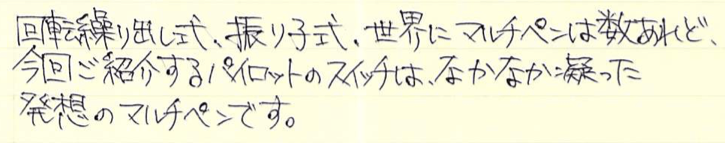 回転繰り出し式、振り子式、世界にマルチペンは数あれど、
今回ご紹介するパイロットのスイッチは、なかなか凝った
発想のマルチペンです。